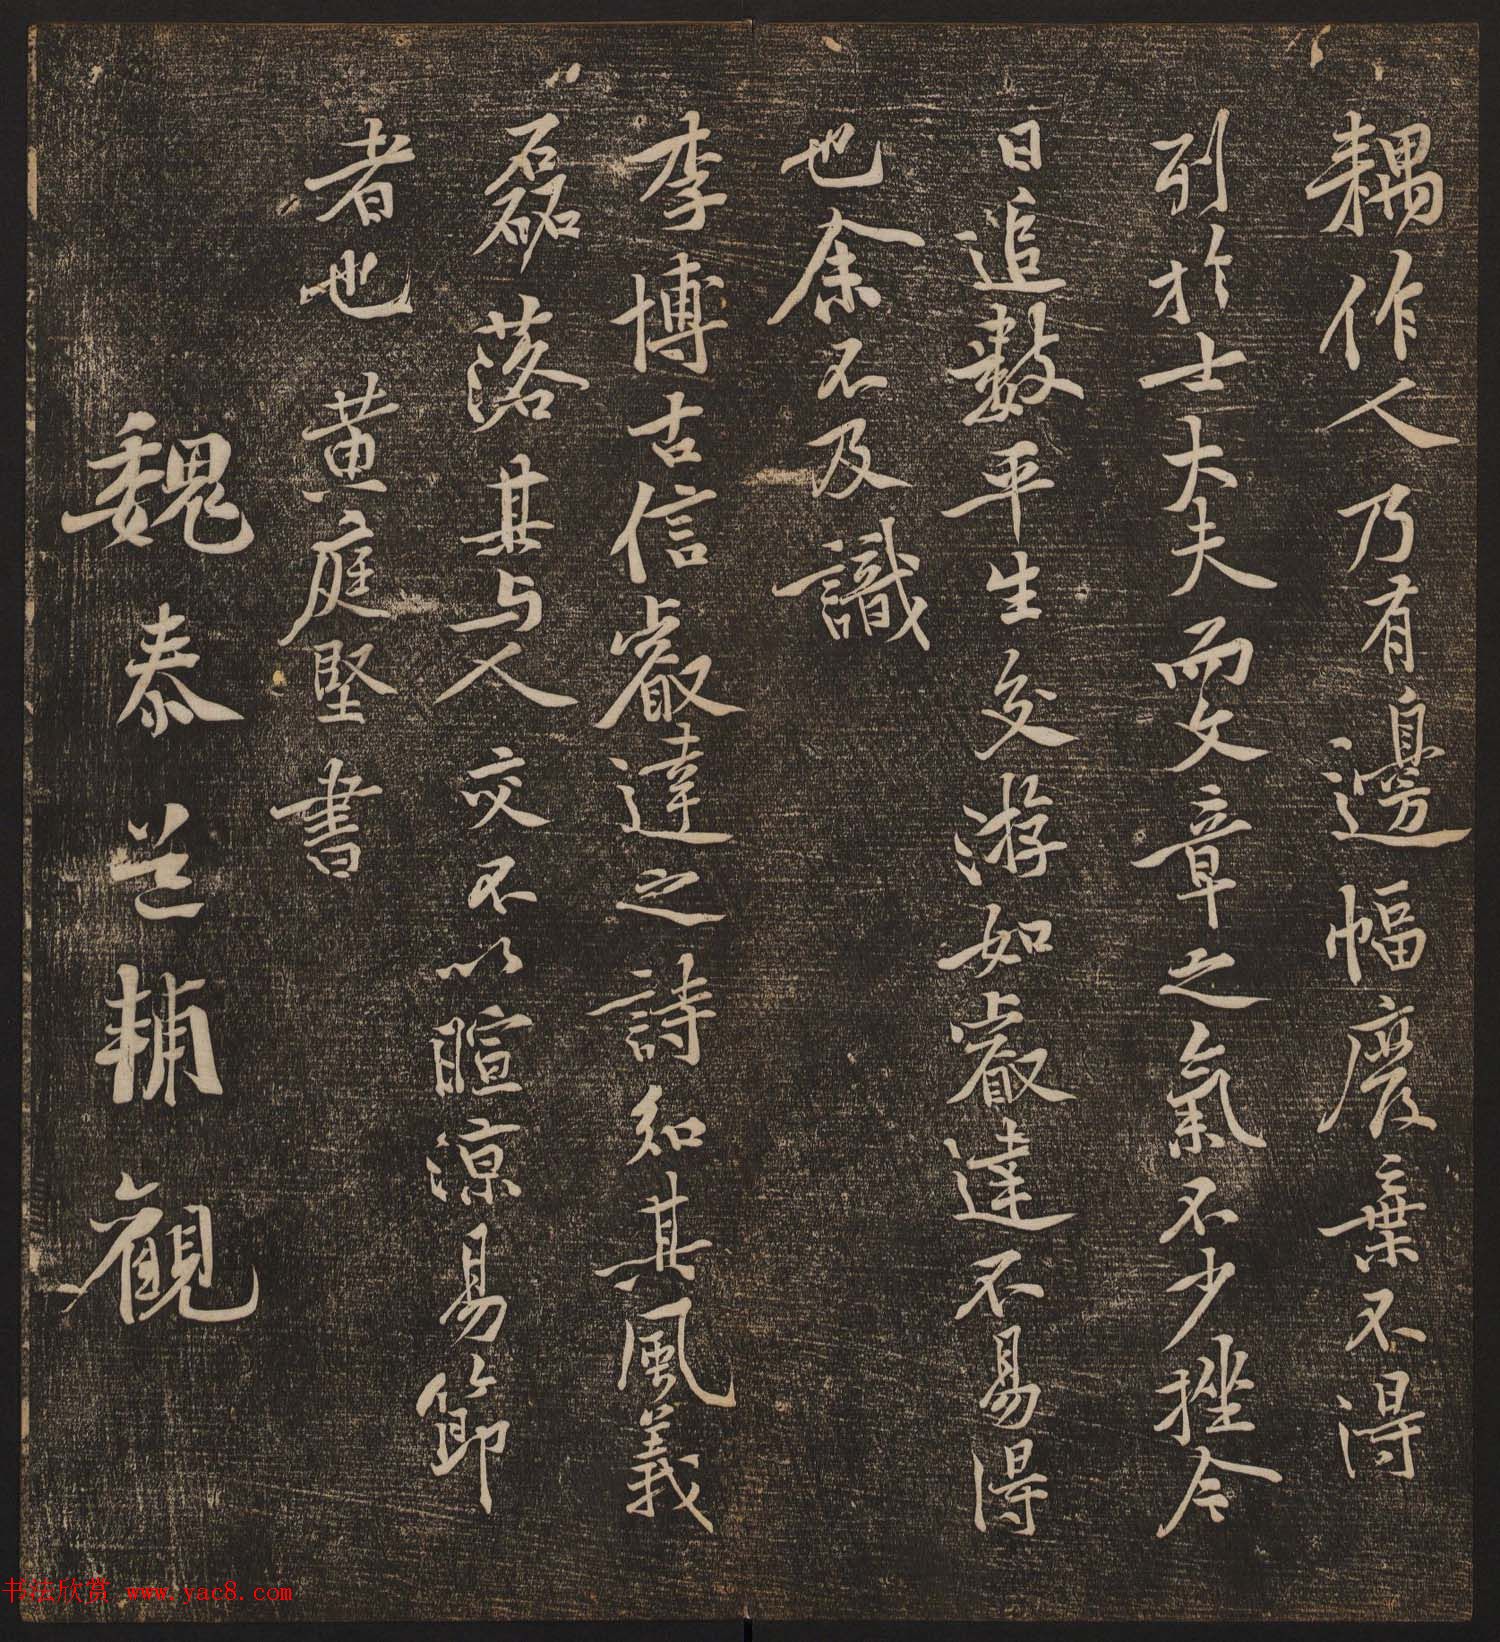 耦作人乃有邊幅廢棄不得
列於士大夫而文章之氣不少挫今
日追數平生交游如叡達不易得
也余不及識
李博古信叡達之詩知其風義
磊落其与人交不以暄涼易節
者也黄庭堅書
魏泰道輔觀
书法欣赏 www.yac8.com